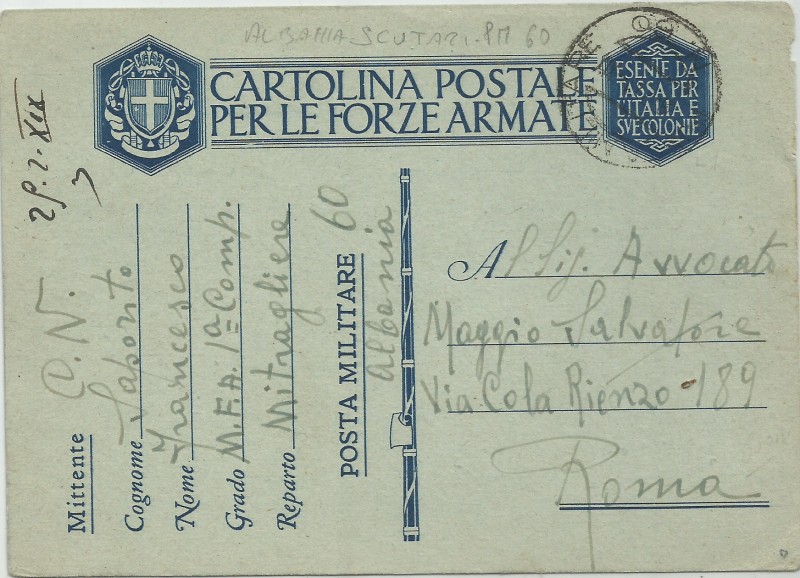 ALBANIA SCUTARI - PM 60
CARTOLINA POSTALE
PER LE FORZE ARMATE
ESENTE DA
TASSA PER
L'ITALIA E
SVE COLONIE
XIX
Mittente C. N.
Cognome Saporito
Nome Francesco
Grado M.F.A. 1ª Comp.
Reparto Mitragliere
POSTA MILITARE 60
Albania
Al Sig. Avvocato
Maggio Salvatore
Via Cola Rienzo 189
Roma